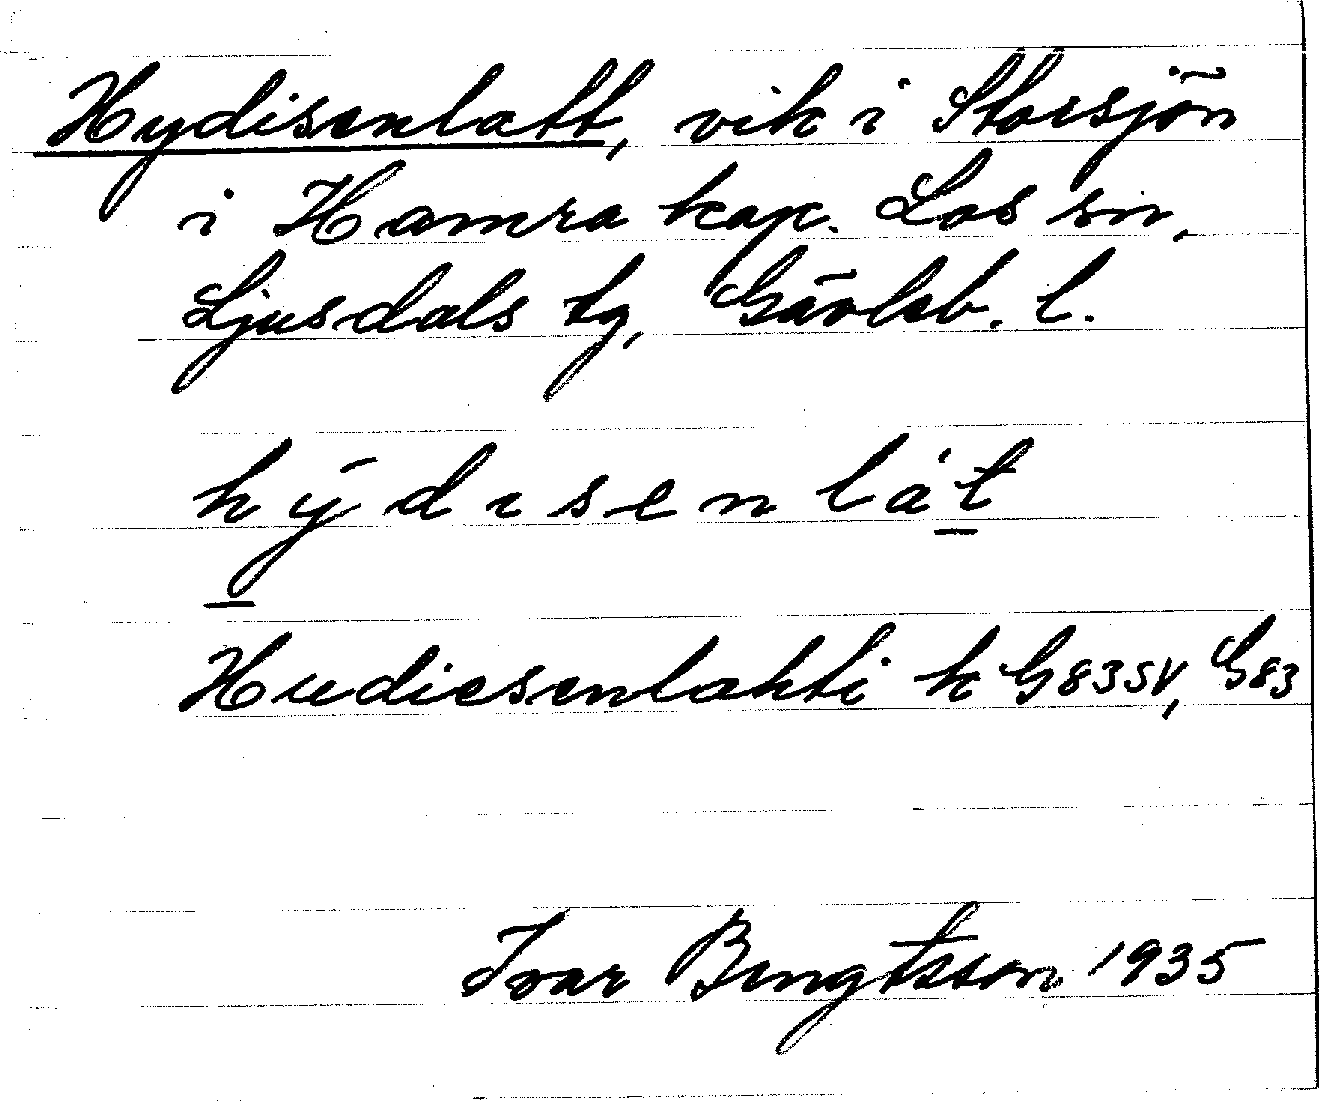 Hydisenlatt, vik i Storsjön
i Hamra kap. Los sn,
Ljusdals tg, Gävleb. l.
hýdısenlàt
Hudiesenlahti k G83SV, G83
Ivar Bengtsson 1935